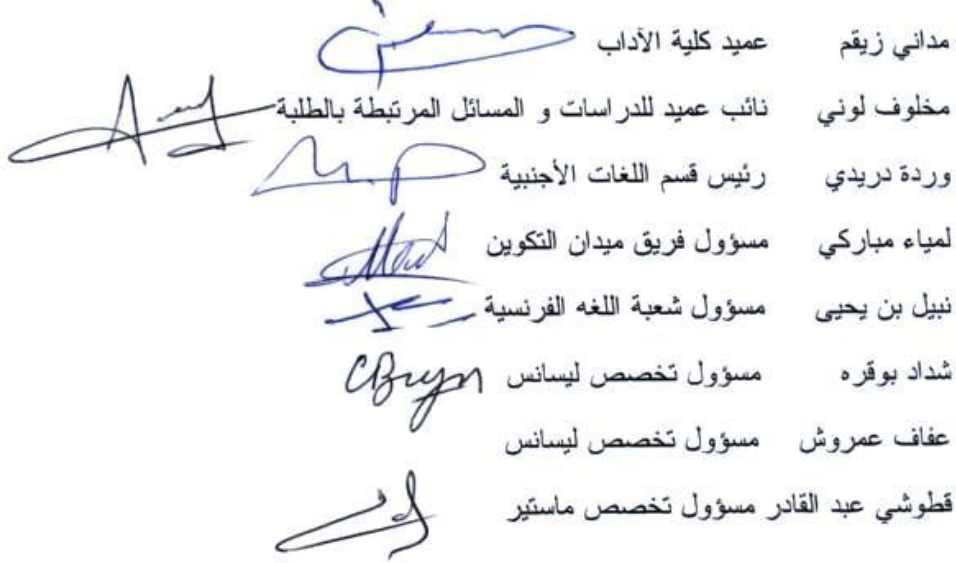 مداني زيقم عميد كلية الآداب
مخلوف لوني نائب عميد للدراسات و المسائل المرتبطة بالطلبة
وردة دريدي رئيس قسم اللغات الأجنبية
لمياء مباركي مسؤول فريق ميدان التكوين
نبيل بن يحيى مسؤول شعبة اللغه الفرنسية
شداد بوقره مسؤول تخصص ليسانس
عفاف عمروش مسؤول تخصص ليسانس
قطوشي عبد القادر مسؤول تخصص ماستير